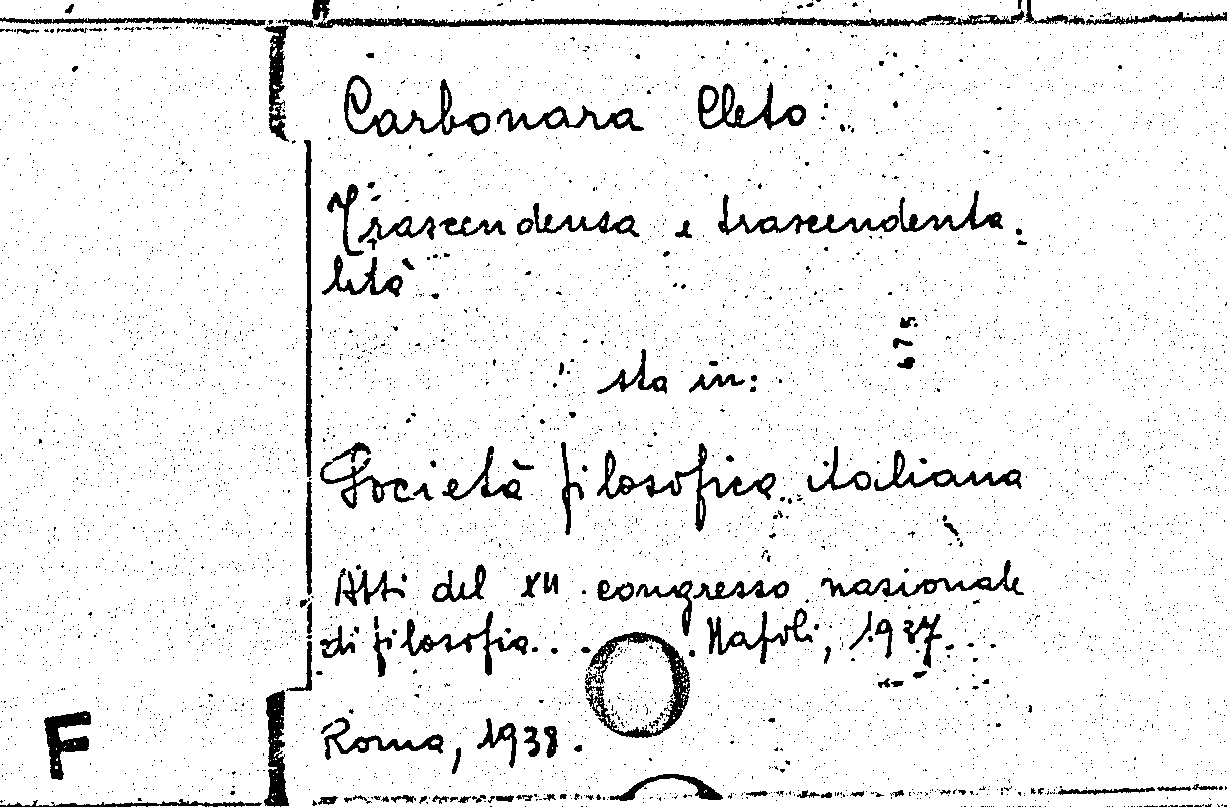 Carbonara Cleto
Trascendenza e trascendenta-
lità.
675
sta in:
Società filosofica italiana
Atti del XII congresso nazionale
di filosofia... Napoli, 1937...
Roma, 1938.
F